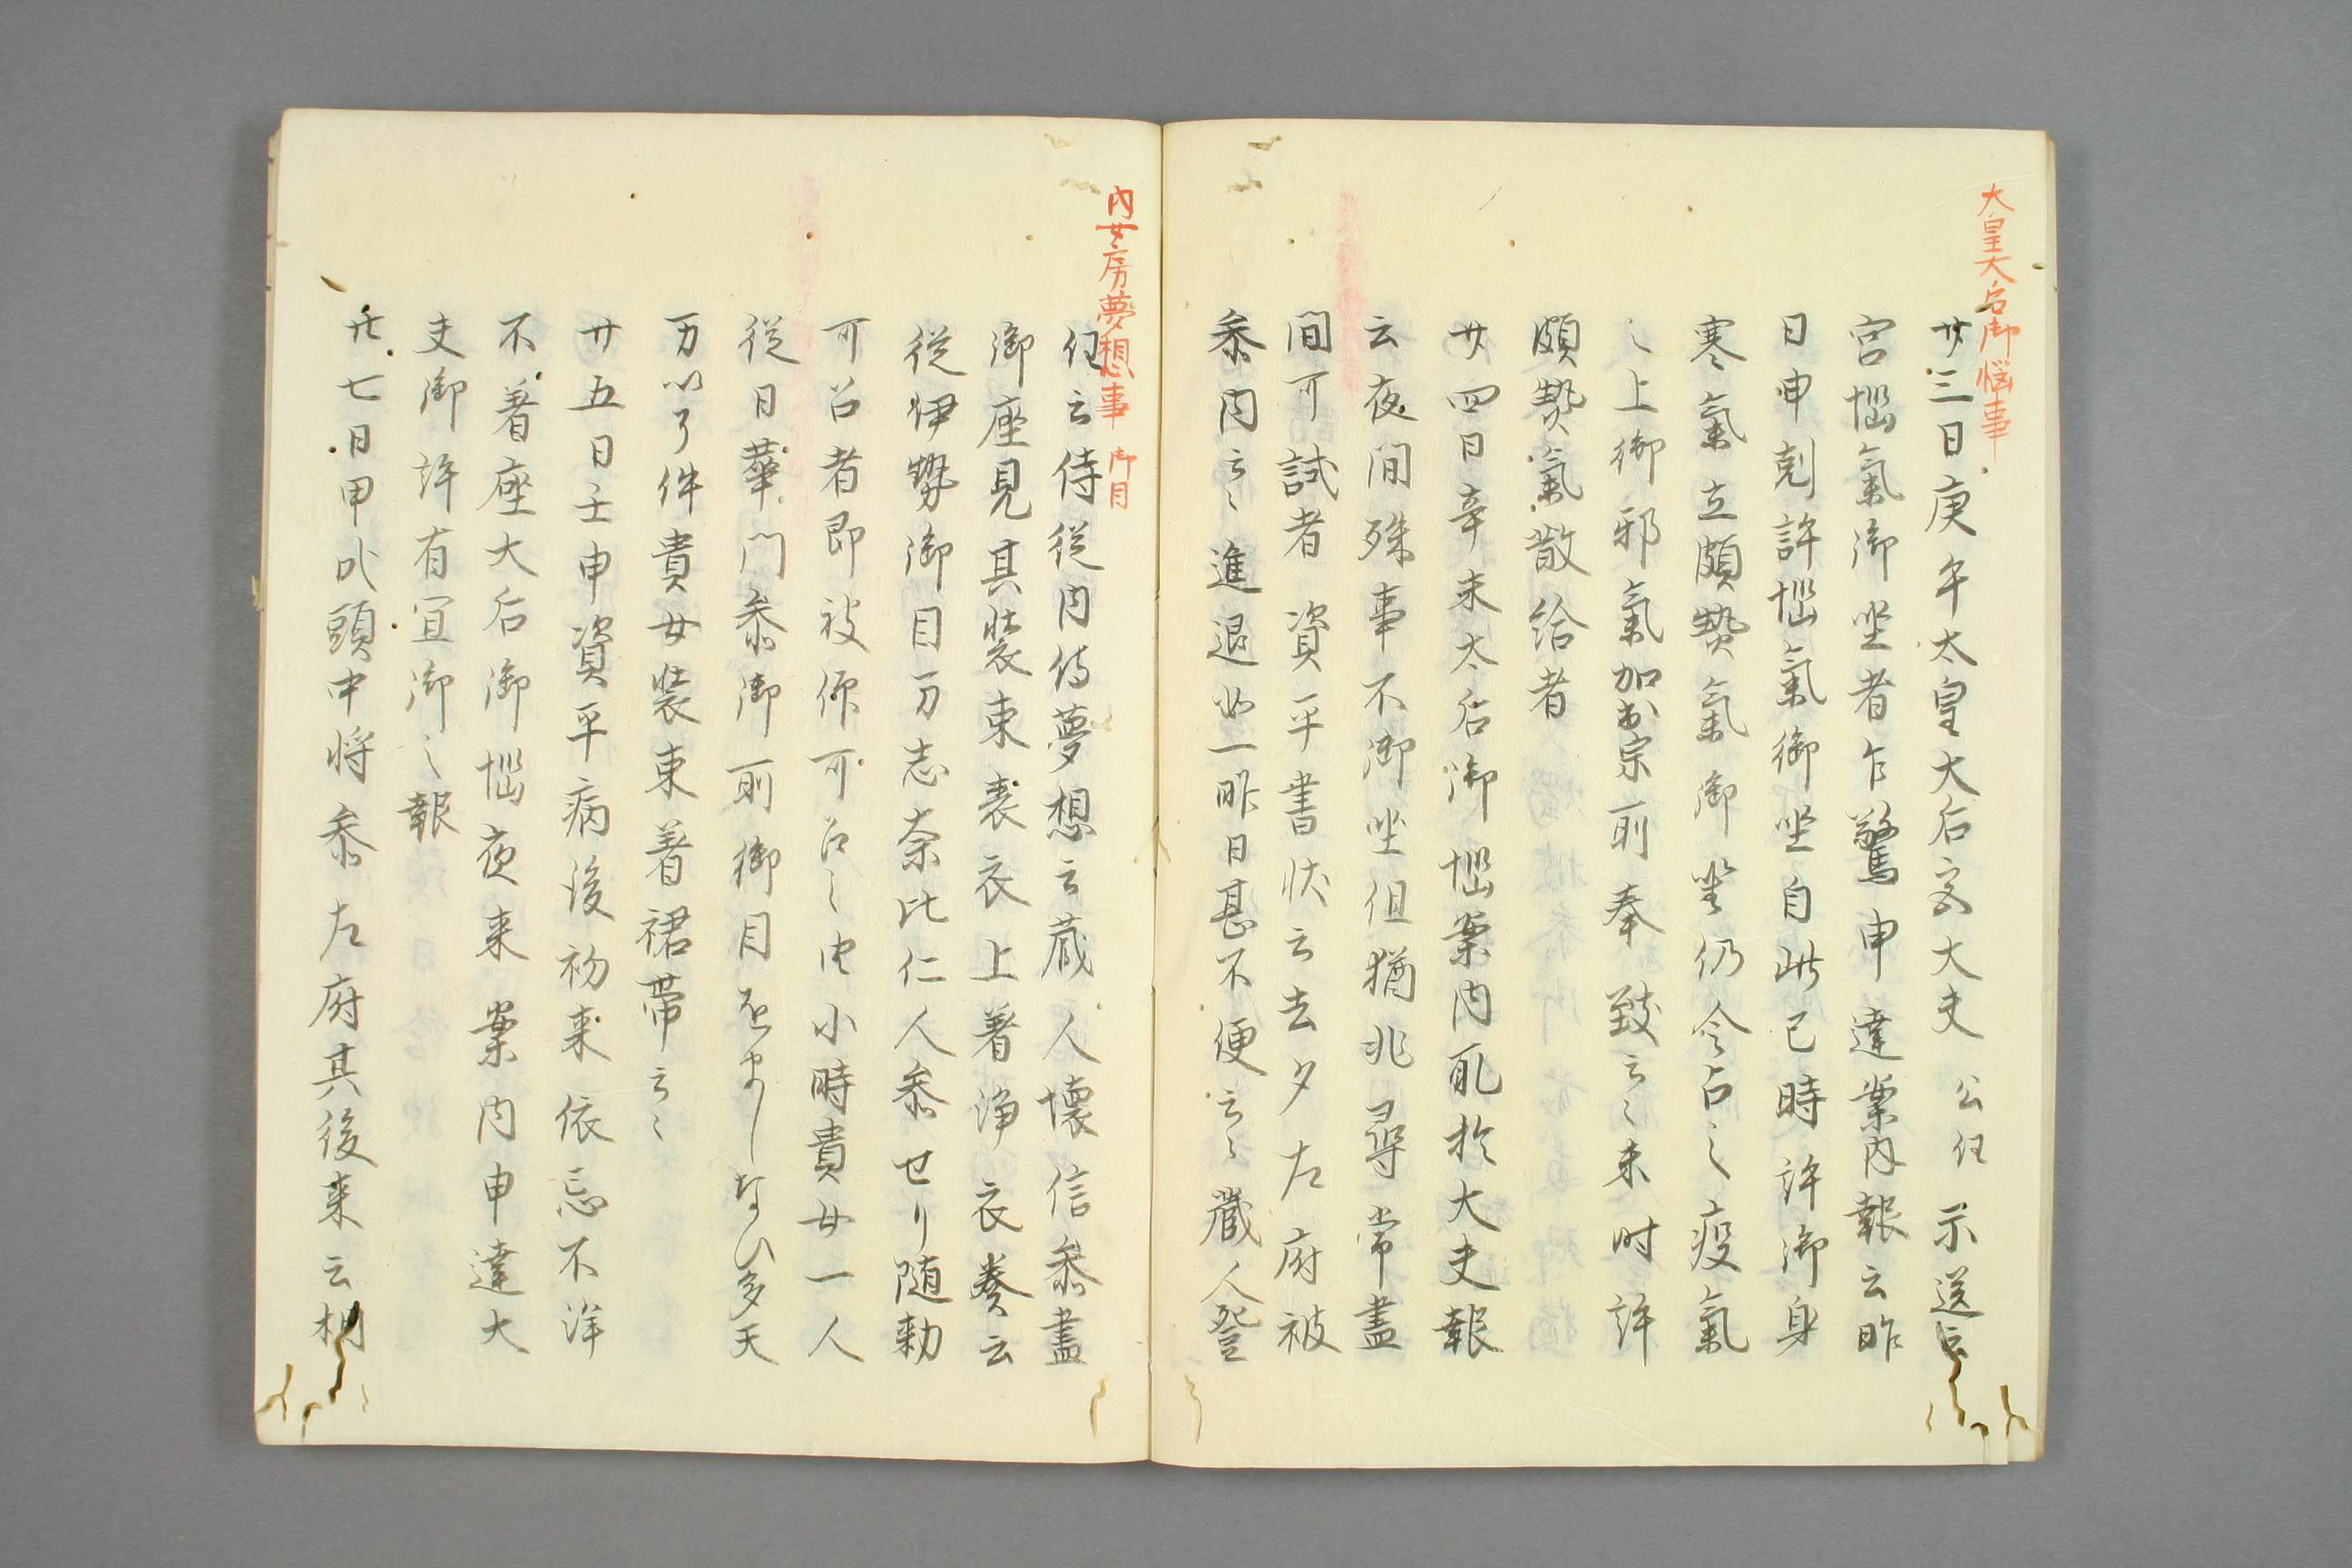 大皇大后御悩事
廿三日庚午太皇大后宮大夫 公任 示送云
宮惱氣御坐者乍驚申達案内報云昨
日申剋許惱氣御坐自此已時許御身
寒氣立頗熱氣御坐仍令占之疫氣
之上御邪氣加於宗所奉致云々未時許
頗熱氣散給者
廿四日辛未太后御惱案内取於大夫報
云夜間殊事不御坐但猶非尋常盡
間可試者資平書状云去夕左府被
参内云々進退如一昨日甚不便云々蔵人登
内女房夢想事 御目
任云侍従内侍夢想云蔵人懐信参晝
御座見其装束表衣上着浄衣奏云
従伊勢御目万志奈比仁人参せり随勅
可召者即被仰可召之由小時貴女一人
従日華門参御前御目をましなひ多天
万以了件貴女装束着裙帯云々
廿五日壬申資平病後初来依忌不洋
不着座大后御惱夜来案内申達大
夫御許有宜御之報
廿七日甲戌頭中将参左府其後来云相